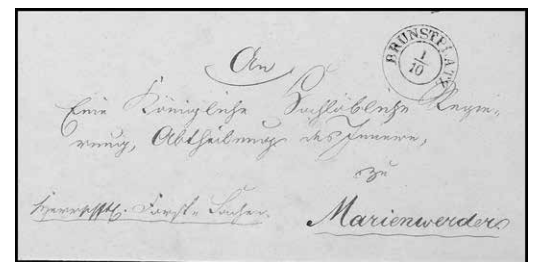 An
BRUNSTPLATZ
1/10
Eine Königliche Hochlöbliche Regie-
rung, Abtheilung des Innern,
zu
Herrschftl. Forst-Sachen.
Marienwerder